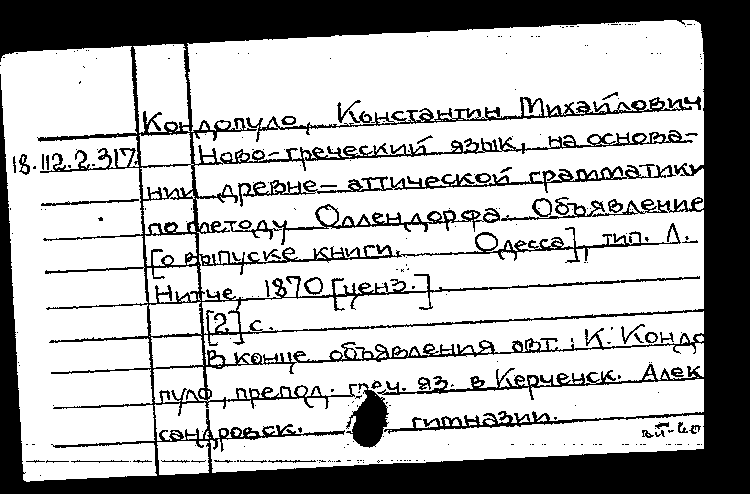 Кондопуло, Константин Михайлович
18.112.2.317. Ново-греческий язык, на основа-
нии древне-аттической грамматики
по методу Оллендорфа. Объявление
[о выпуске книги. Одесса], тип. Л.
Нитче, 1870 [ценз.].
[2] с.
В конце объявления авт.: К. Кондо
пуло, препод. греч. яз. в Керченск. Алек
сандровск. гимназии.